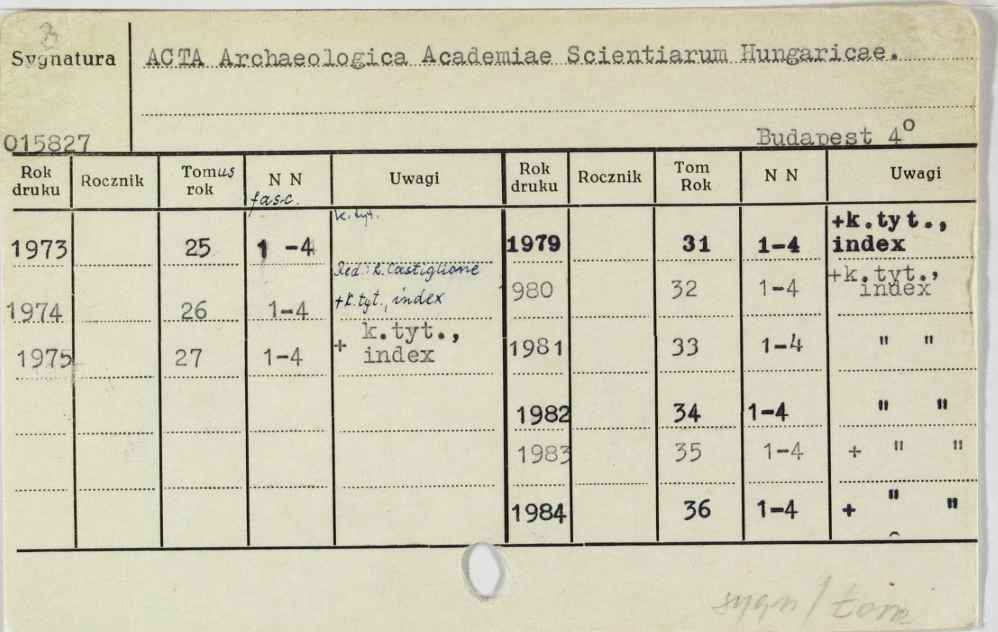 3
Sygnatura ACTA Archaeologica Academiae Scientiarum Hungaricae.
015827 Budapest 4º
Rok druku Rocznik Tomus rok N N fasc. Uwagi Rok druku Rocznik Tom Rok N N Uwagi
k. tyt.
1973 25 1 -4 1979 31 1-4 +k.tyt., index
Red: L. Castiglione
1974 26 1-4 +k.tyt., index 980 32 1-4 +k.tyt., index
1975 27 1-4 + k.tyt., index 1981 33 1-4 " "
1982 34 1-4 " "
1983 35 1-4 + " "
1984 36 1-4 + " "
sygn / tom